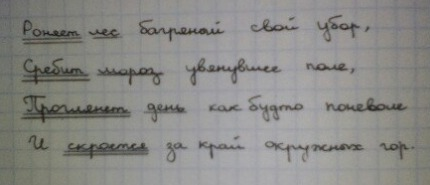 Роняет лес багряный свой убор,
Сребит мороз увянувшее поле,
Проглянет день как будто поневоле
И скроется за край окружных гор.